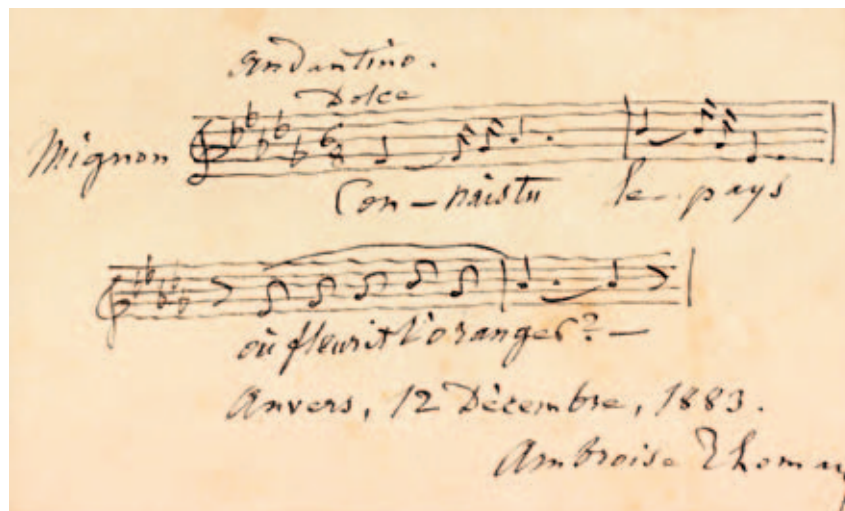 Andantino.
Dolce
Mignon
6
8
Con - nais tu le pays
où fleurit l'oranger? -
Anvers, 12 Décembre, 1883.
Ambroise Thomas